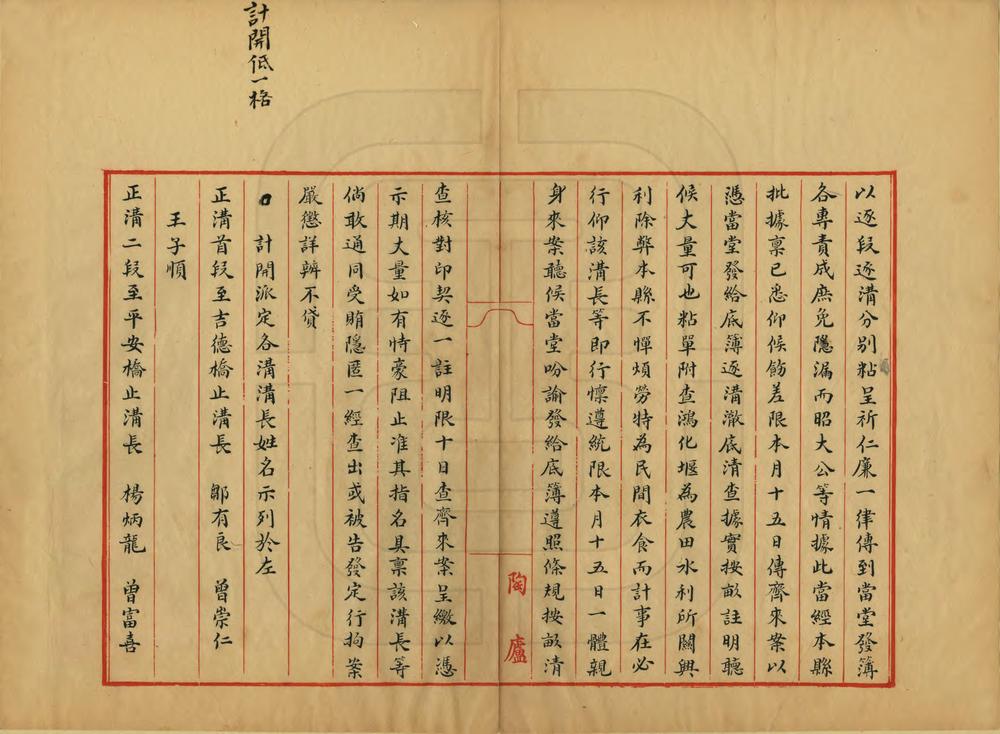 以逐段逐溝分別粘呈祈仁廉一律傳到當堂發簿
各專責成庶免隱漏而昭大公等情據此當經本縣
批據稟已悉仰候飭差限本月十五日傳齊來案以
憑當堂發給底簿逐溝澈底清查據實按畝註明聽
候丈量可也粘單附查鴻化堰為農田水利所關興
利除弊本縣不憚煩勞特為民間衣食而計事在必
行仰該溝長等即行懍遵統限本月十五日一體親
身來案聽候當堂吩諭發給底簿遵照條規按畝清
陶廬
查核對印契逐一註明限十日查齊來案呈繳以憑
示期丈量如有恃豪阻止准其指名具稟該溝長等
倘敢通同受賄隱匿一經查出或被告發定行拘案
嚴懲詳辦不貸
計開派定各溝溝長姓名示列於左
計開低一格
正溝首段至吉德橋止溝長　鄒有良　曾崇仁
王子順
正溝二段至平安橋止溝長　楊炳龍　曾富喜